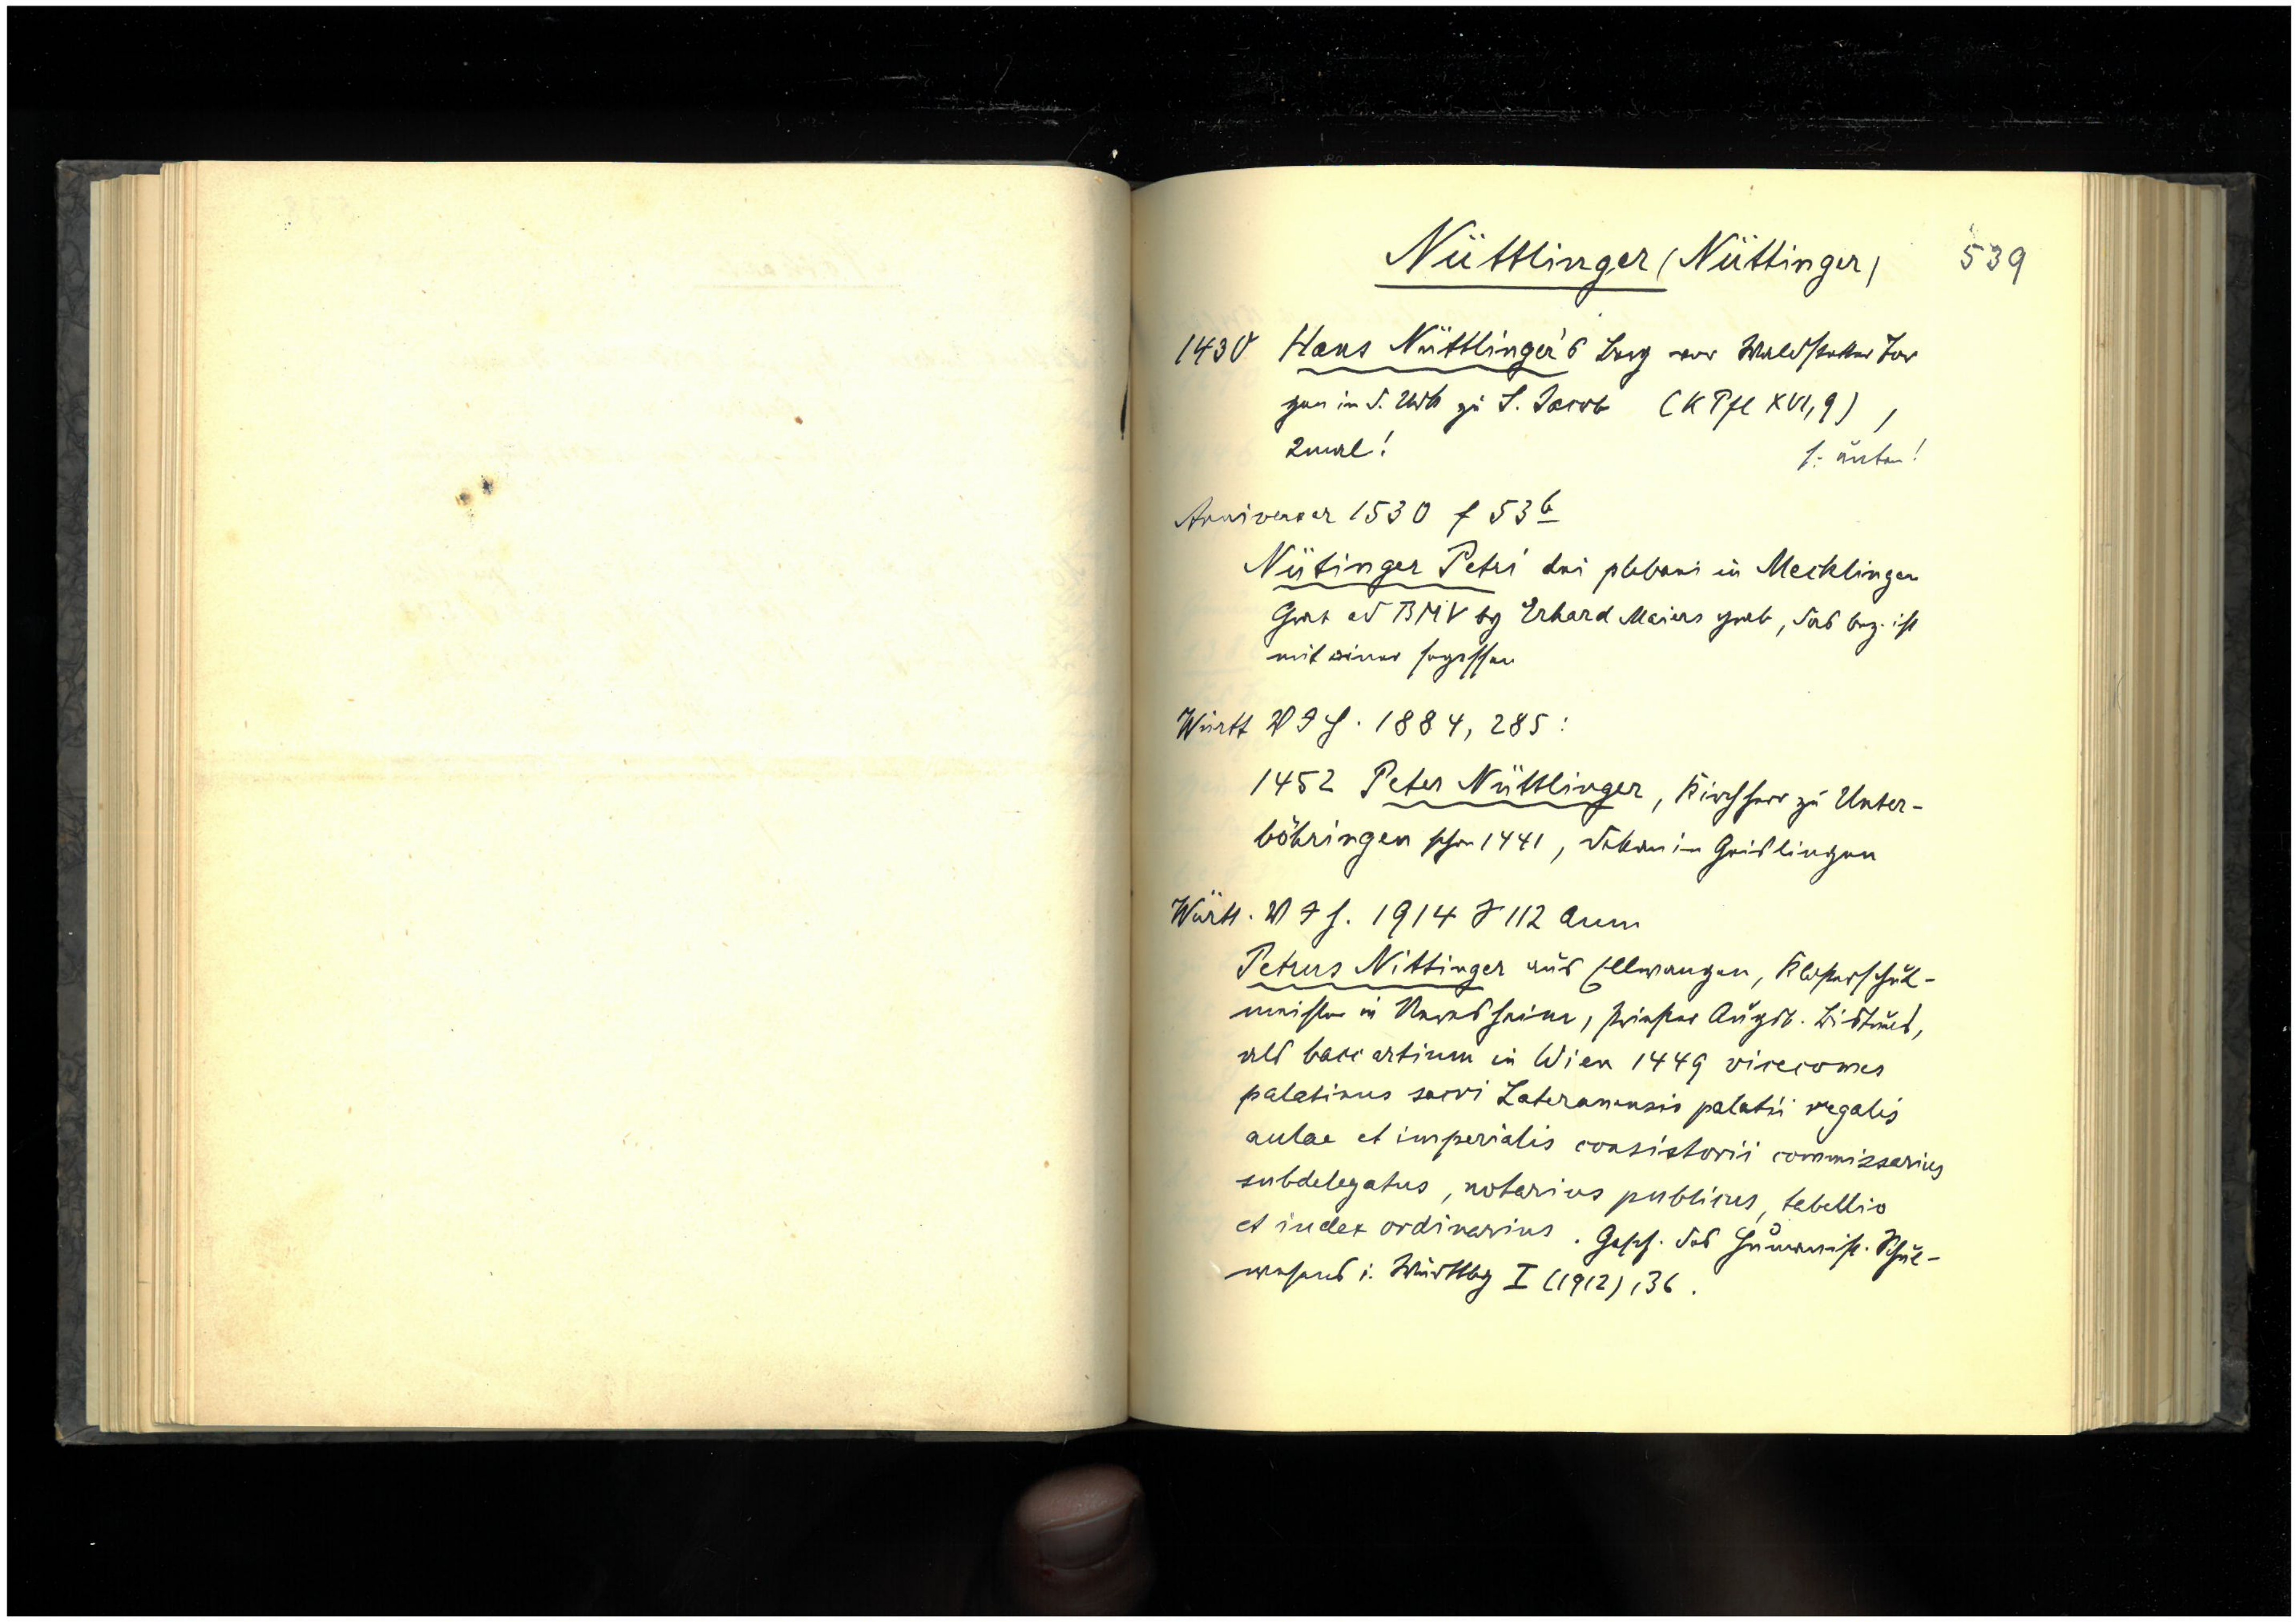 Nüttlinger (Nüttinger)
539
1430 Hans Nüttlinger's Berg vor Waldstetter Tor
gen in d. Urk zu S. Jacob (K Pfl XVI, 9),
2mal!
s. unten!
Anniversar 1530 f 53b
Nütinger Petri dni plebani in Mecklingen
Grab ad BMV by Erhard Maiers grab, das bez. ist
mit einer segessen
Württ VJH. 1884, 285:
1452 Peter Nüttlinger, Kirchherr zu Unter-
böhringen schon 1441, Dekan in Geislingen
Württ. VJH. 1914 S 112 Anm
Petrus Nittinger aus Ellwangen, Klosterschul-
meister in Neresheim, Priester Augsb. Bistums,
als bacc artium in Wien 1449 vicecomes
palatinus sacri Lateranensis palatii regalis
aulae et imperialis consistorii commissarius
subdelegatus, notarius publicus, tabellio
et iudex ordinarius. Gesch. des humanist. Schul-
wesens i. Württbg I (1912), 36.